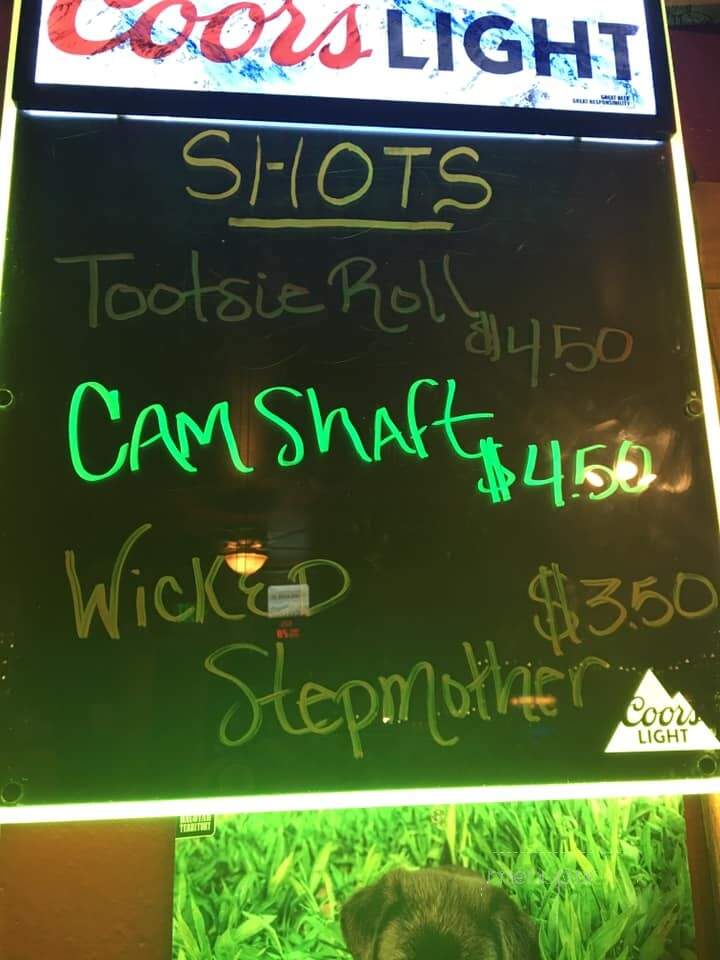 Coors LIGHT
GREAT BEER
GREAT RESPONSIBILITY
SHOTS
Tootsie Roll
$4.50
CAM ShAft $4.50
WickED $3.50
Stepmother
Coors
LIGHT
TERRITORY